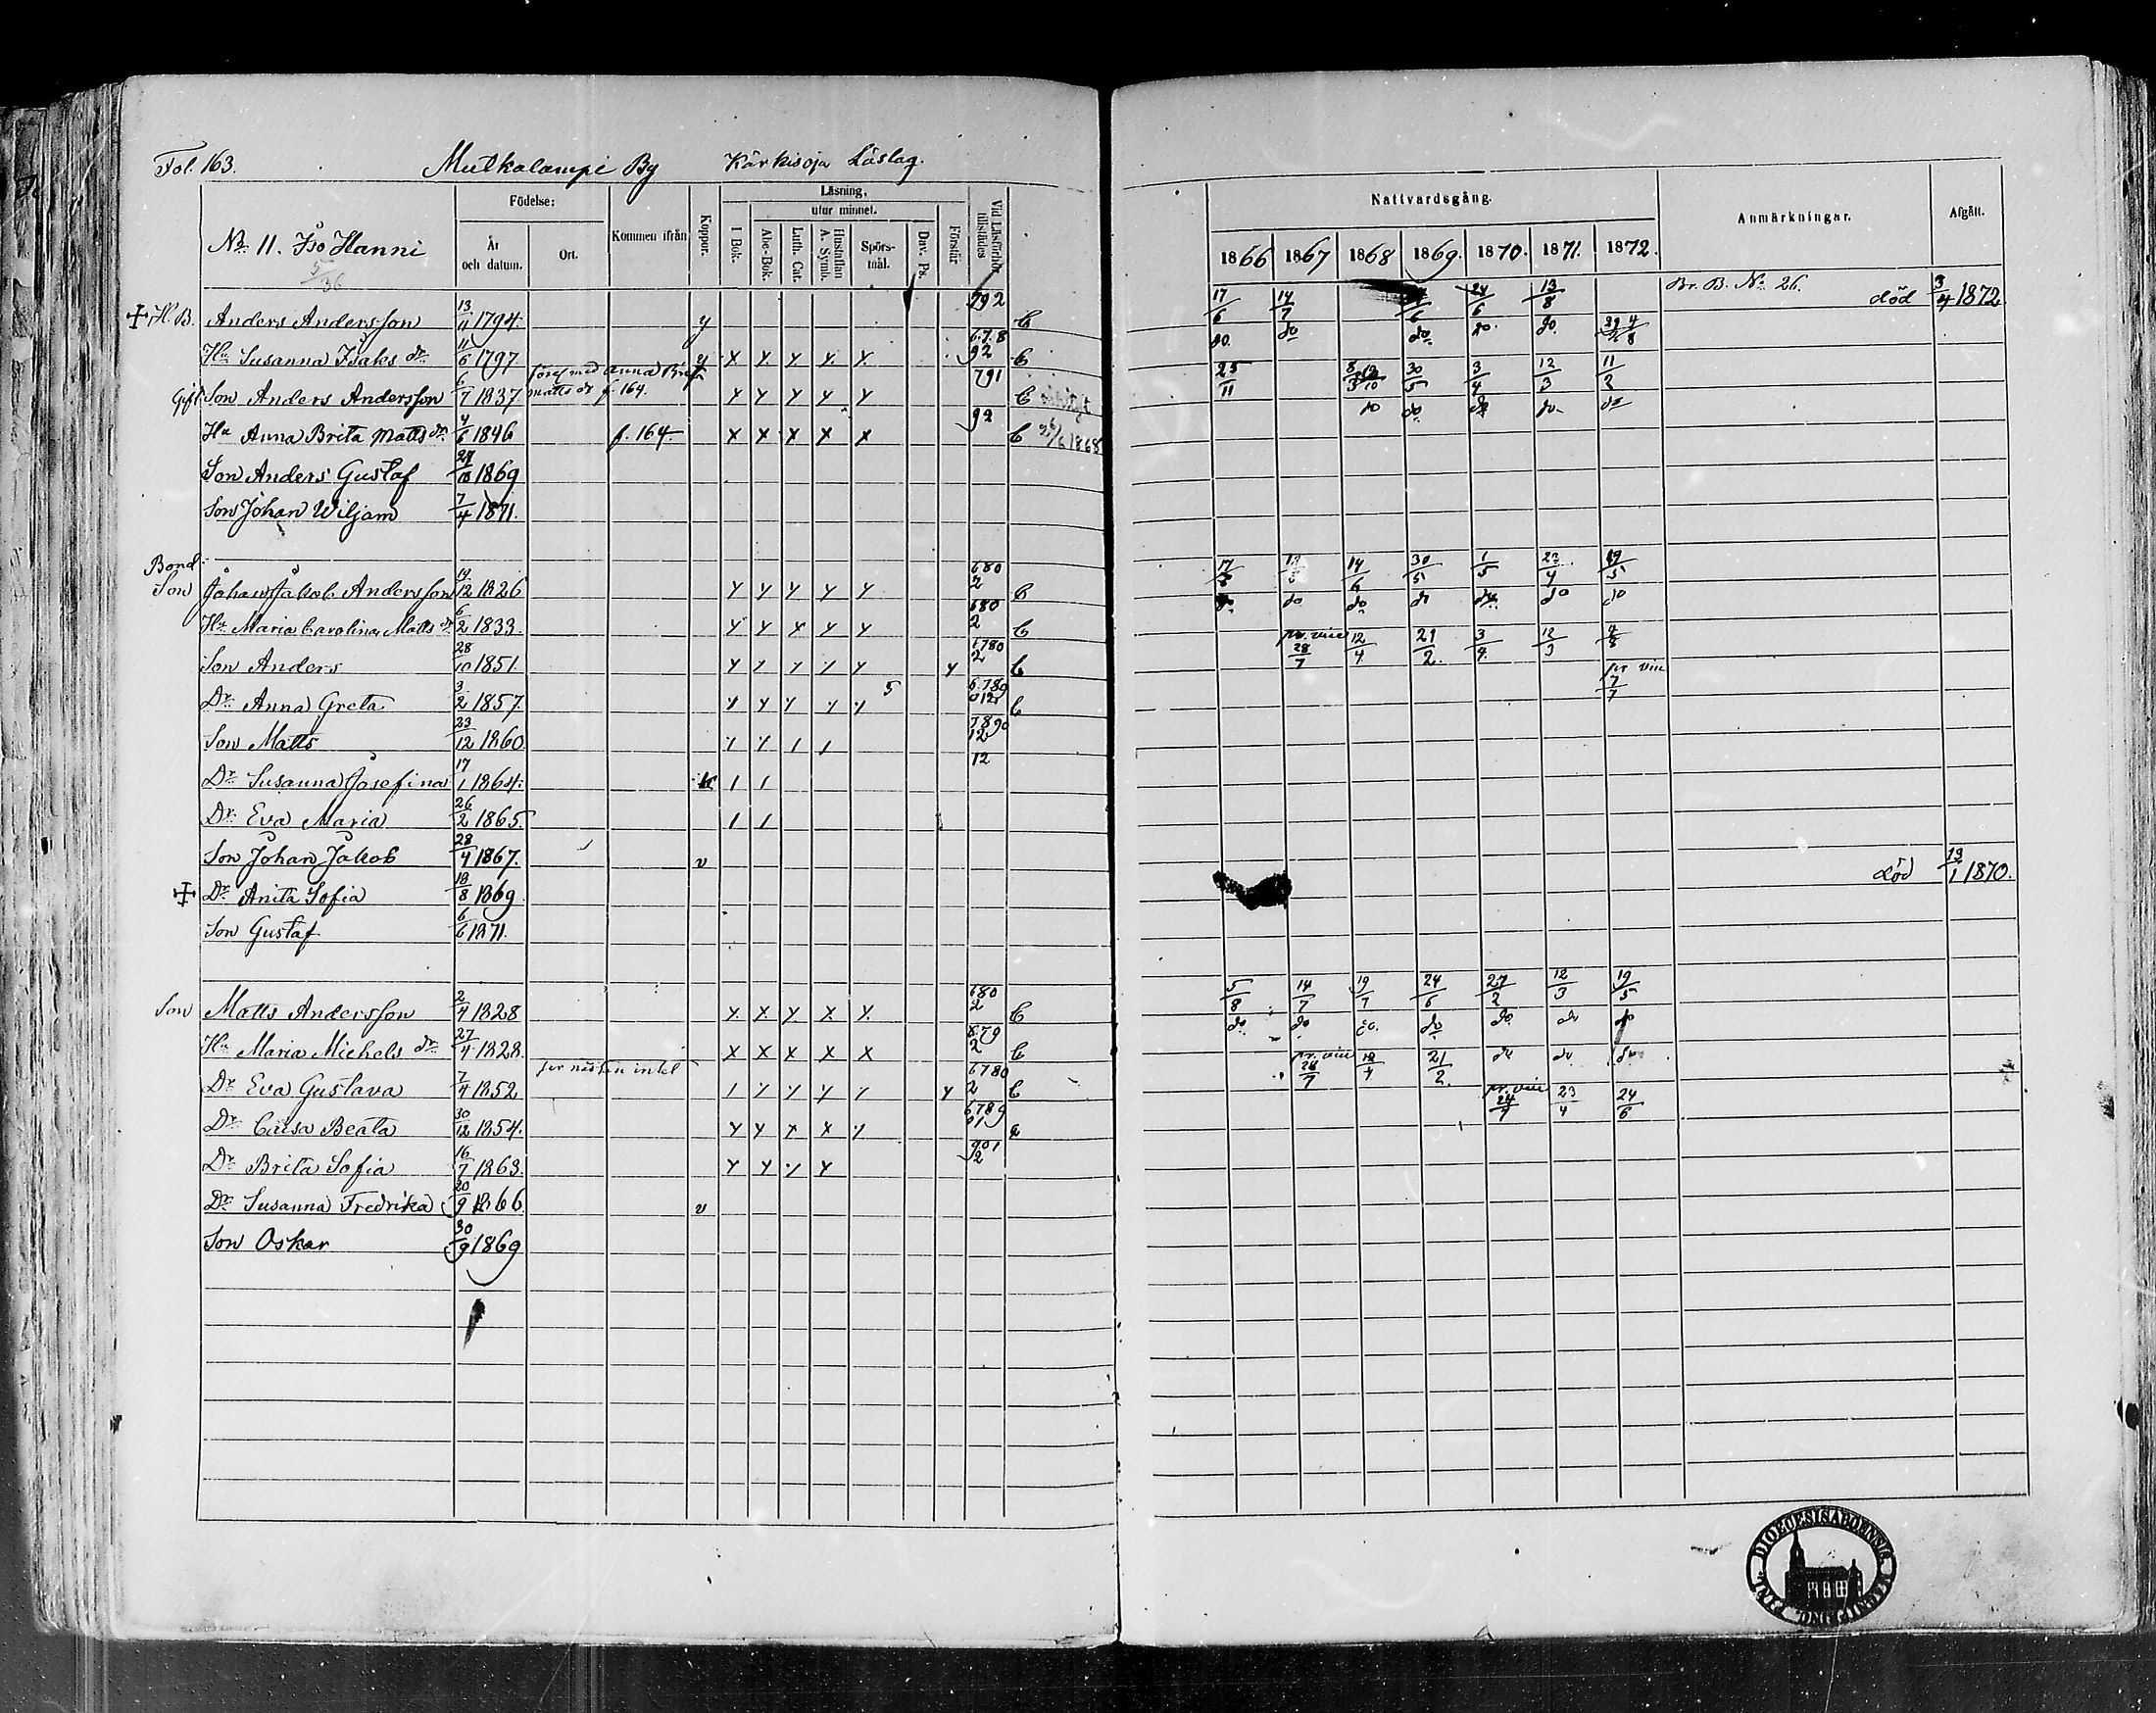 Fol. 163. Mutkalampi By Kärkisoja Läslag.
Födelse: Läsning, Nattvardsgång. Anmärkningar. Afgått.
utur minnet.
No 11. Iso Hanni År och datum. Ort. Kommen ifrån Koppor. I Bok. Abc-Bok. Luth. Cat. Hustaflan A. Symb. Spörsmål. Dav. Ps. Förstår Vid Läsförhör tillstädes 1866 1867 1868 1869. 1870. 1871. 1872.
5/36
H. B. Anders Andersson 13/11 1794. y 792 C 17/6 14/7 24/6 13/8 Br. B. No 26. död 3/4 1872
Hu Susanna Isaks dr 11/6 1797 y x y y x x 6.7.8 92 C do do do do do
Gift Son Anders Andersson 6/7 1837 matts dr f. 164. y y y y y 791 C 25/11 30/5 3/4 12/3 11/2
Hu Anna Brita Matts dr 4/6 1846 f. 164. x x x x x 92 C 1868 do do do do do
Son Anders Gustaf 1869
Son Johan Wiljam 7/4 1871.
Bond
Son Johan Jakob Andersson 19/12 1826 y y y y y 680 2 C 14/6 30/5 1/5 23/4 19/5
Hu Maria Carolina Matts dr 6/2 1833. y y x y y 680 2 C do do do do do do
Son Anders 28/10 1851. y y y y y y 6780 2 C pr. vin 28/7 12/4 21/2. 3/4. 12/3
Dr Anna Greta 3/2 1857. y y y y y 5 6.789 012 C pr vin 7/7
Son Matts 23/12 1860 7890 12
Dr Susanna Josefina 17/1 1864. 1 1 12
Dr Eva Maria 26/2 1865. 1 1
Son Johan Jakob 28/4 1867. v
Dr Anita Sofia 18/8 1869 död 13/1 1870.
Son Gustaf 6/6 1871.
Son Matts Andersson 2/4 1828 y x y x y 680 2 C 5/8 14/7 19/7 24/6 27/2 12/3 19/5
Hu Maria Michels dr 27/4 1828. x x x x x 879 2 C do do. do. do do do do
ser nästan intet
Dr Eva Gustava 7/4 1852 1 y y y y y 6780 2 C pr. vin 28/7 21/2. do do do
Dr Caisa Beata 30/12 1854. y y x x y 6789 01 pr. vin 23/4 24/6
Dr Brita Sofia 16/7 1863. y y y y 901 2
Dr Susanna Fredrika 20/9 1866 v
Son Oskar 30/9 1869
DIOECESIS ABOENSIS MAGNI PRINC. FINL.